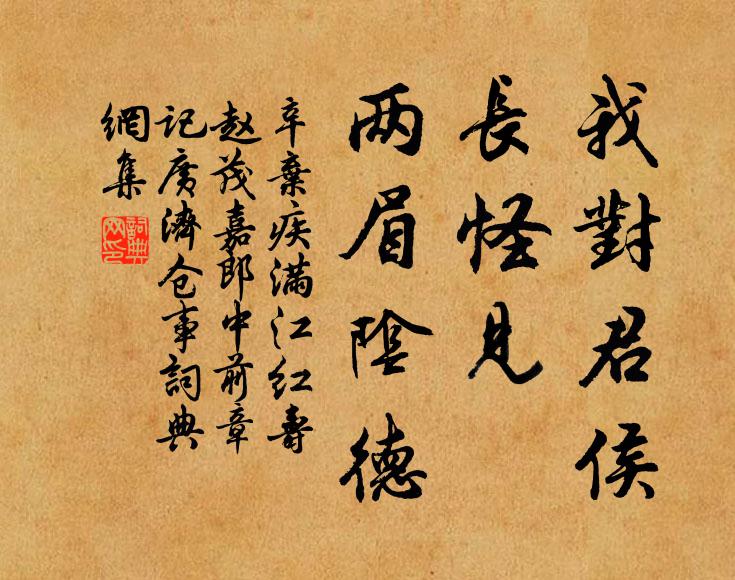 我對君侯
長怪見
两眉陰德
辛棄疾满江红壽
赵茂嘉郎中前章
记廣濟仓事詞典
網集
詞典
网印